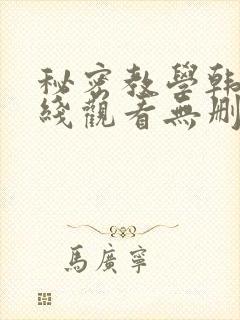 秘密教學韩
綫觀看無删
馬廣寧